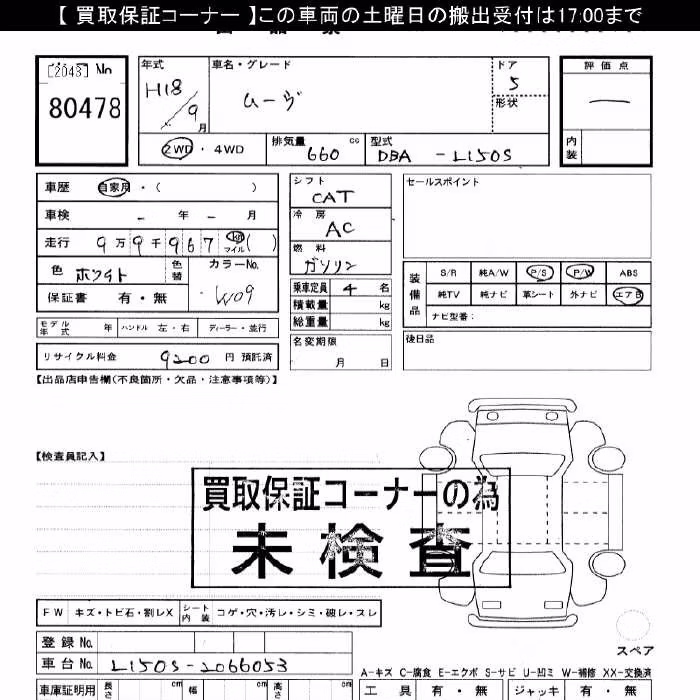 【 買取保証コーナー 】この車両の土曜日の搬出受付は17:00まで
[2048] No
80478
年式 車名・グレード ドア 評価点
H18 ムーヴ 5 —
9月 形状
排気量 cc 型式 内装
2WD・4WD 660 DBA - L150S
車歴 自家用・( ) シフト CAT セールスポイント
車検 - 年 - 月 冷房 AC
走行 9万9千967 km マイル ( ) 燃料 ガソリン
色 ホワイト 色替 カラーNo. W09
保証書 有・無
乗車定員 4 名
積載量 kg
総重量 kg
装備品 S/R 純A/W P/S P/W ABS
純TV 純ナビ 革シート 外ナビ エアB
ナビ型番:
モデル年式 年 ハンドル 左・右 ディーラー・並行
名変期限 月 日
後日品
リサイクル料金 9200 円 預託済
【出品店申告欄(不良箇所・欠品・注意事項等)】
【検査員記入】
買取保証コーナーの為
未検査
FW キズ・トビ石・割レX シート内装 コゲ・穴・汚レ・シミ・破レ・スレ
登録 No.
車台 No. L150S-2066053
スペア
A-キズ C-腐食 E-エクボ S-サビ U-凹ミ W-補修 XX-交換済
車庫証明用 長さ cm 幅 cm 高さ cm 工具 有・無 ジャッキ 有・無